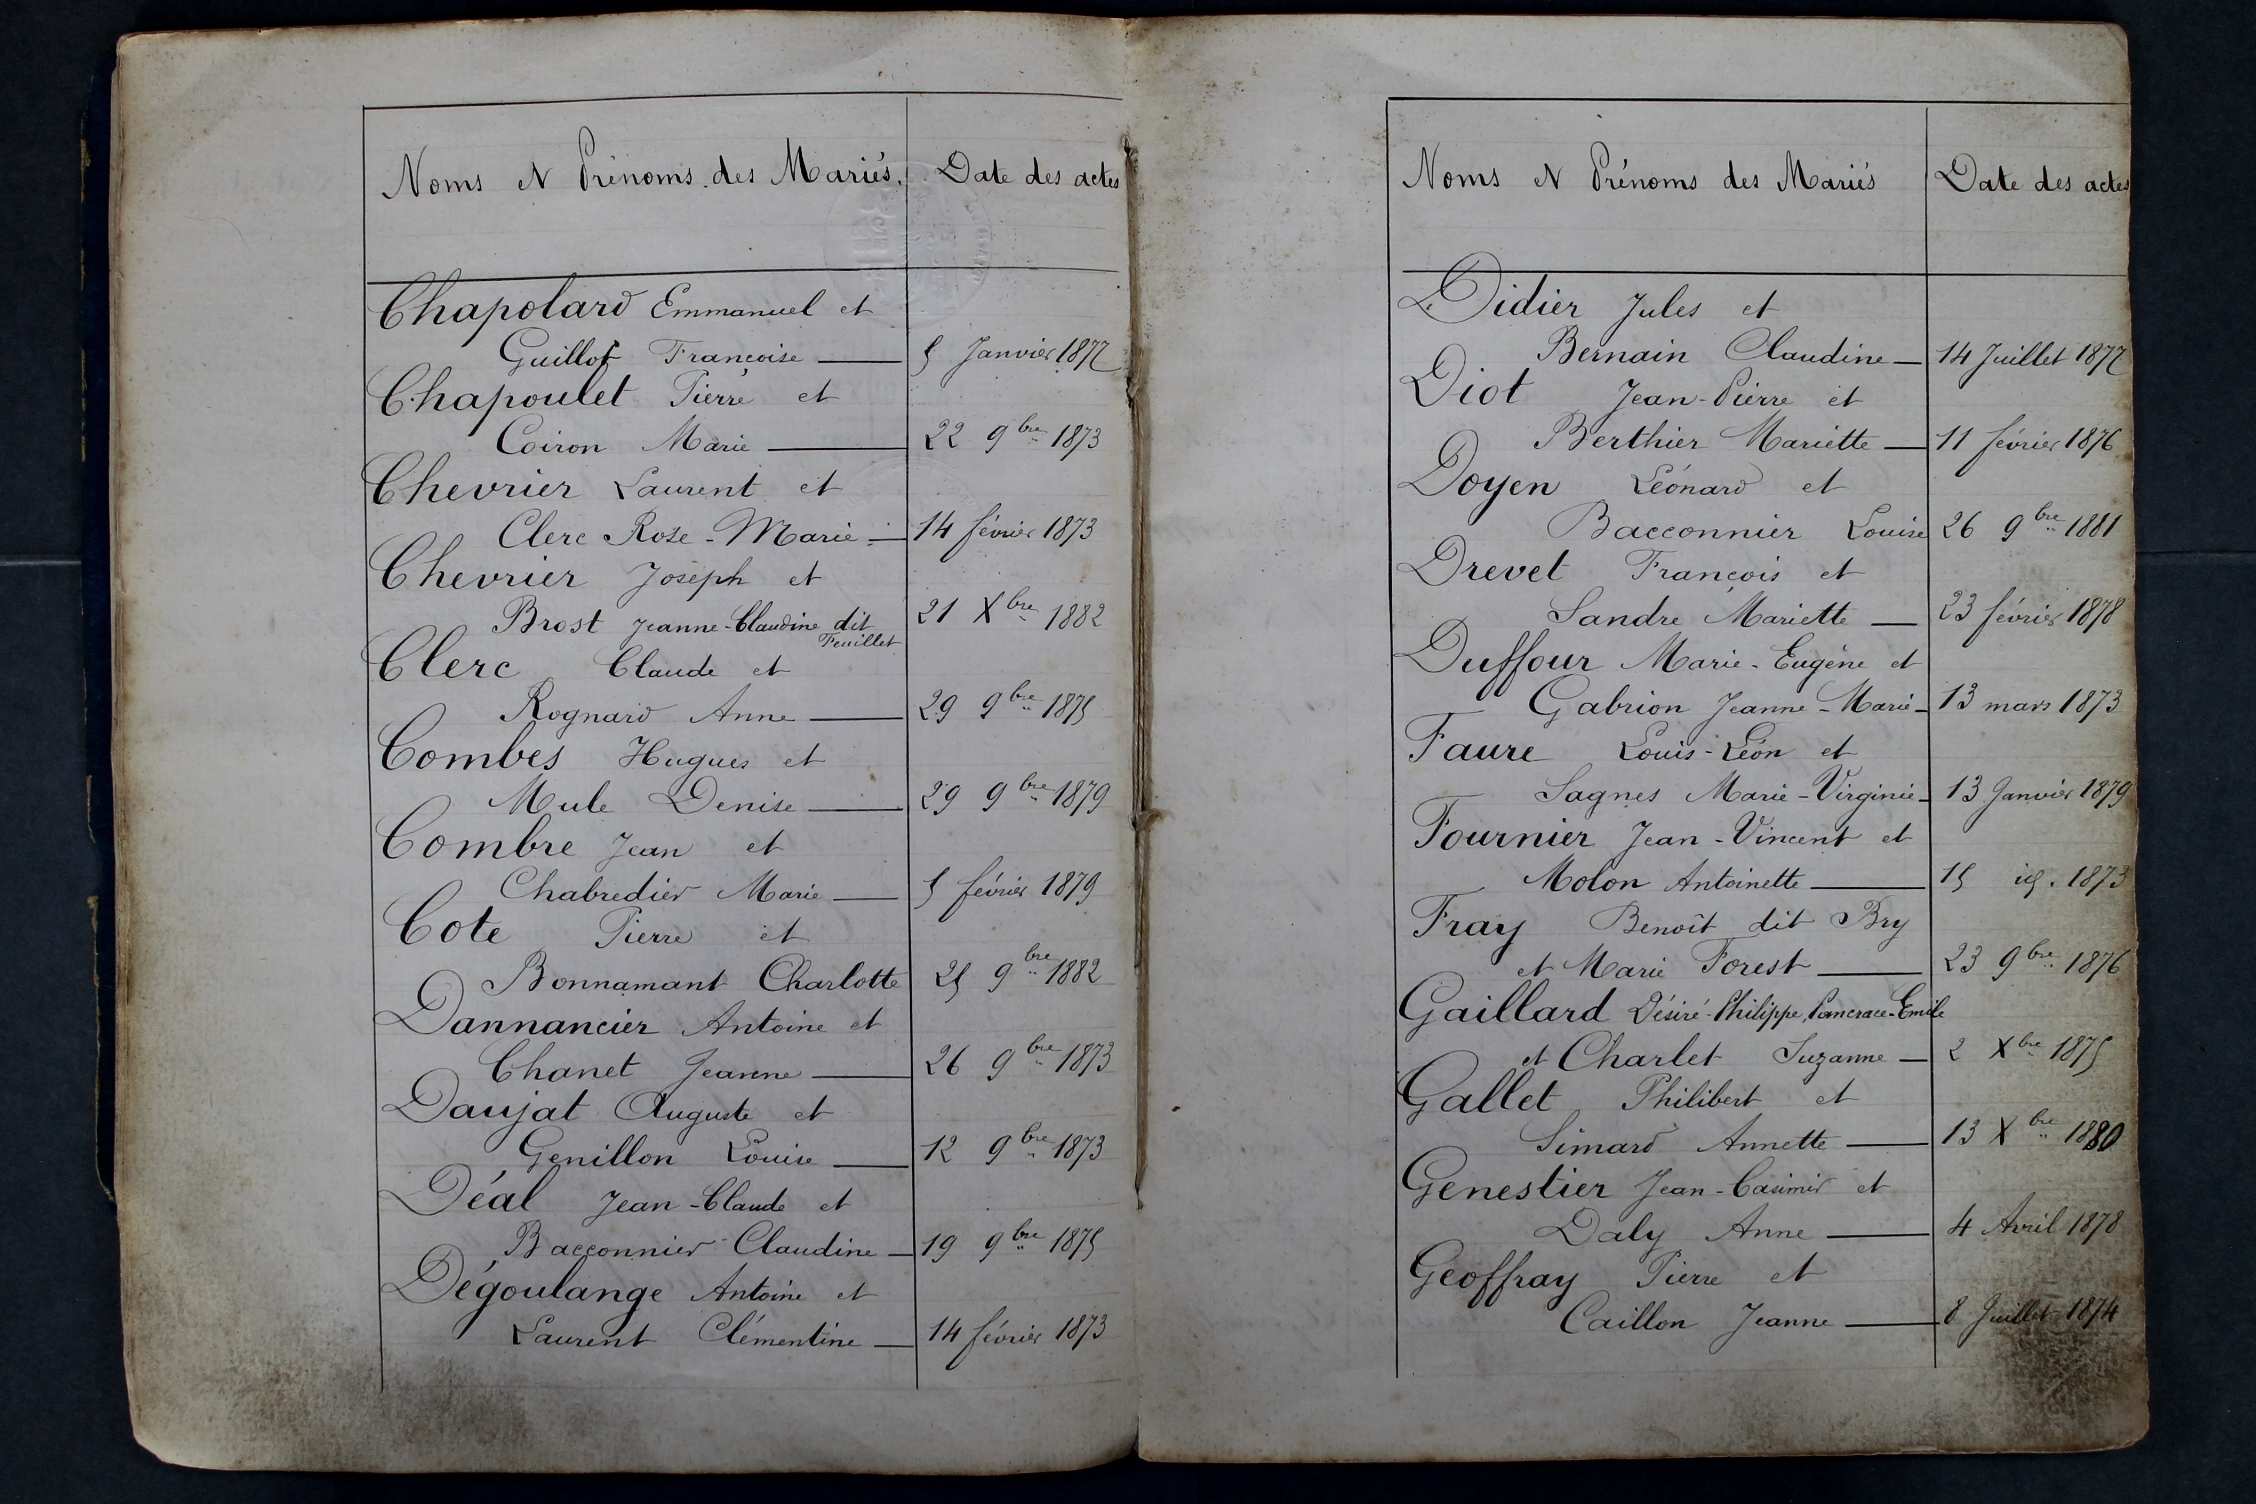 Noms et Prénoms des Mariés. Date des actes
Chapolard Emmanuel et
Guillot Françoise — 5 Janvier 1877
Chapoulet Pierre et
Coiron Marie — 22 9bre 1873
Chevrier Laurent et
Clerc Rose-Marie — 14 février 1873
Chevrier Joseph et
Brost Jeanne-Claudine dit Feuillet 21 Xbre 1882
Clerc Claude et
Rognard Anne — 29 9bre 1875
Combes Hugues et
Mule Denise — 29 9bre 1879
Combre Jean et
Chabredier Marie — 5 février 1879
Cote Pierre et
Bonnamant Charlotte 25 9bre 1882
Dannancier Antoine et
Chanet Jeanne — 26 9bre 1873
Daujat Auguste et
Genillon Louise — 12 9bre 1873
Déal Jean-Claude et
Bacconnier Claudine — 19 9bre 1875
Dégoulange Antoine et
Laurent Clémentine — 14 février 1873
Noms et Prénoms des Mariés Date des actes
Didier Jules et
Bernain Claudine — 14 Juillet 1877
Diot Jean-Pierre et
Berthier Mariette — 11 février 1876
Doyen Léonard et
Bacconnier Louise 26 9bre 1881
Drevet François et
Sandre Mariette — 23 février 1878
Duffour Marie-Eugène et
Gabrion Jeanne-Marie — 13 mars 1873
Faure Louis-Léon et
Sagnes Marie-Virginie — 13 Janvier 1879
Fournier Jean-Vincent et
Molon Antoinette — 15 1873
Fray Benoît dit Bry
et Marie Forest — 23 9bre 1876
Gaillard Désiré-Philippe, Pancrace-Emile
et Charlet Suzanne — 2 Xbre 1875
Gallet Philibert et
Simard Annette — 13 Xbre 1880
Genestier Jean-Casimir et
Daly Anne — 4 Avril 1878
Geoffray Pierre et
Caillon Jeanne — 8 Juillet 1874